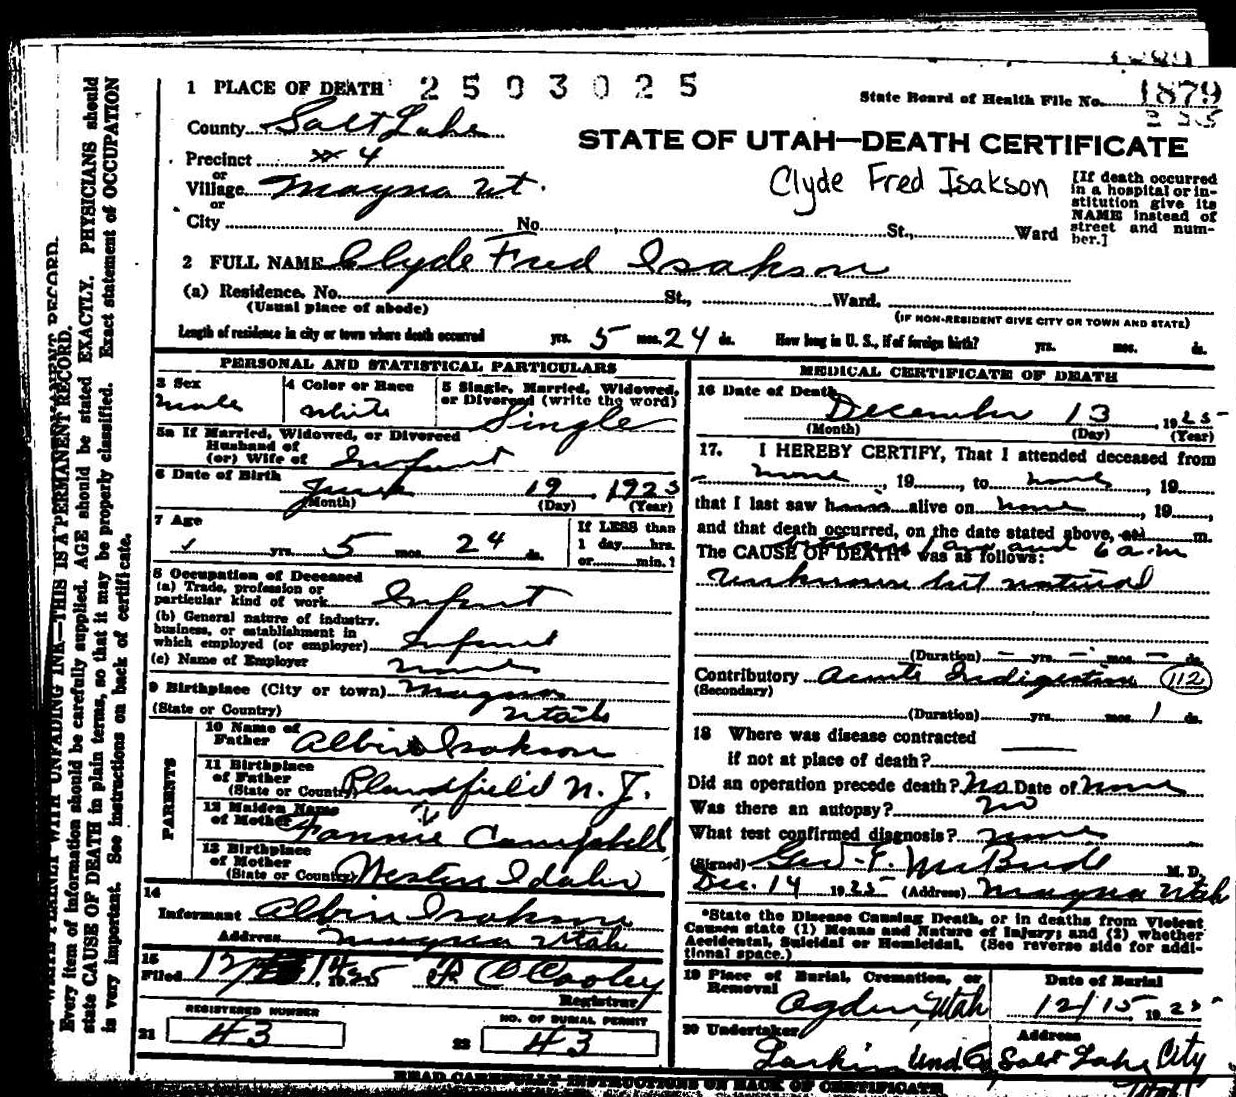 1889
1 PLACE OF DEATH 2503025
State Board of Health File No. 1879
235
County Salt Lake
STATE OF UTAH—DEATH CERTIFICATE
Precinct 4
or
Village Magna Ut.
or
City No. St., Ward
Clyde Fred Isakson
[If death occurred
in a hospital or in-
stitution give its
NAME instead of
street and num-
ber.]
2 FULL NAME Clyde Fred Isakson
(a) Residence. No. St., Ward.
(Usual place of abode) (IF NON-RESIDENT GIVE CITY OR TOWN AND STATE)
Length of residence in city or town where death occurred yrs. 5 mos. 24 ds. How long in U. S., if of foreign birth? yrs. mos. ds.
PERSONAL AND STATISTICAL PARTICULARS
3 Sex
male
4 Color or Race
white
5 Single, Married, Widowed,
or Divorced (write the word)
Single
5a If Married, Widowed, or Divorced
Husband of
(or) Wife of Infant
6 Date of Birth
June 19 1925
(Month) (Day) (Year)
7 Age
yrs. 5 mos. 24 ds.
If LESS than
1 day hrs.
or min.?
8 Occupation of Deceased
(a) Trade, profession or
particular kind of work Infant
(b) General nature of industry,
business, or establishment in
which employed (or employer) Infant
(c) Name of Employer none
9 Birthplace (City or town) Magna
(State or Country) Utah
PARENTS
10 Name of
Father Albin Isakson
11 Birthplace
of Father
(State or Country) Plandfield N. J.
12 Maiden Name
of Mother Fannie Campbell
13 Birthplace
of Mother
(State or Country) Weston Idaho
14
Informant Albin Isakson
Address Magna Utah
15
Filed 12/14, 1925 C Cooley
Registrar
REGISTERED NUMBER
21 43
NO. OF BURIAL PERMIT
22 43
MEDICAL CERTIFICATE OF DEATH
16 Date of Death
December 13, 1925
(Month) (Day) (Year)
17. I HEREBY CERTIFY, That I attended deceased from
none, 19, to none, 19
that I last saw h alive on none, 19,
and that death occurred, on the date stated above, at m.
between 1 am and 6 a.m
The CAUSE OF DEATH was as follows:
unknown but natural
(Duration) — yrs. — mos. — ds.
Contributory Acute Indigestion 112
(Secondary)
(Duration) yrs. mos. 1 ds.
18 Where was disease contracted
if not at place of death?
Did an operation precede death? No Date of None
Was there an autopsy? no
What test confirmed diagnosis? none
(Signed) Geo. E. McBride M. D.
Dec. 14 1925 (Address) Magna Utah
*State the Disease Causing Death, or in deaths from Violent
Causes state (1) Means and Nature of Injury; and (2) whether
Accidental, Suicidal or Homicidal. (See reverse side for addi-
tional space.)
19 Place of Burial, Cremation, or
Removal
Ogden, Utah
Date of Burial
12/15 1925
20 Undertaker
Larkin Und Co
Address
Salt Lake City
Utah
READ CAREFULLY INSTRUCTIONS ON BACK OF CERTIFICATE
WRITE PLAINLY WITH UNFADING INK—THIS IS A PERMANENT RECORD.
Every item of information should be carefully supplied. AGE should be stated EXACTLY. PHYSICIANS should
state CAUSE OF DEATH in plain terms, so that it may be properly classified. Exact statement of OCCUPATION
is very important. See instructions on back of certificate.